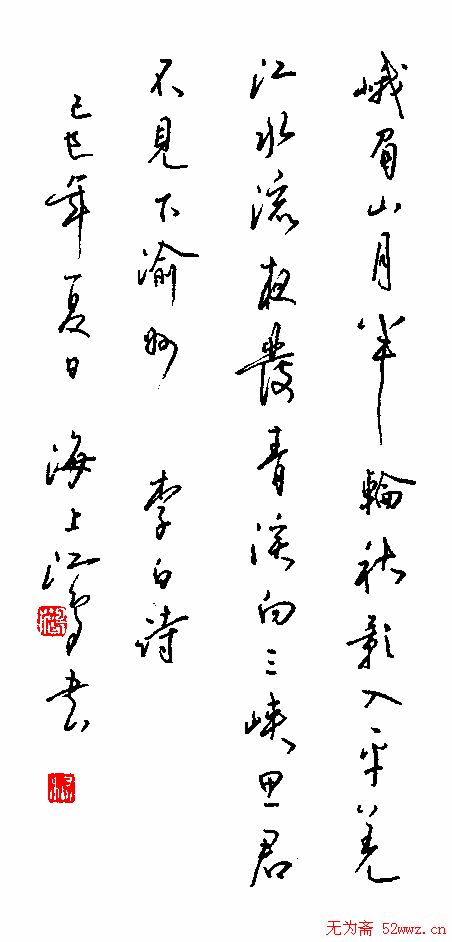 峨眉山月半輪秋影入平羌
江水流夜發青溪向三峽思君
不見下渝州 李白詩
己巳年夏日 海上江書
无为斋 52wwz.cn